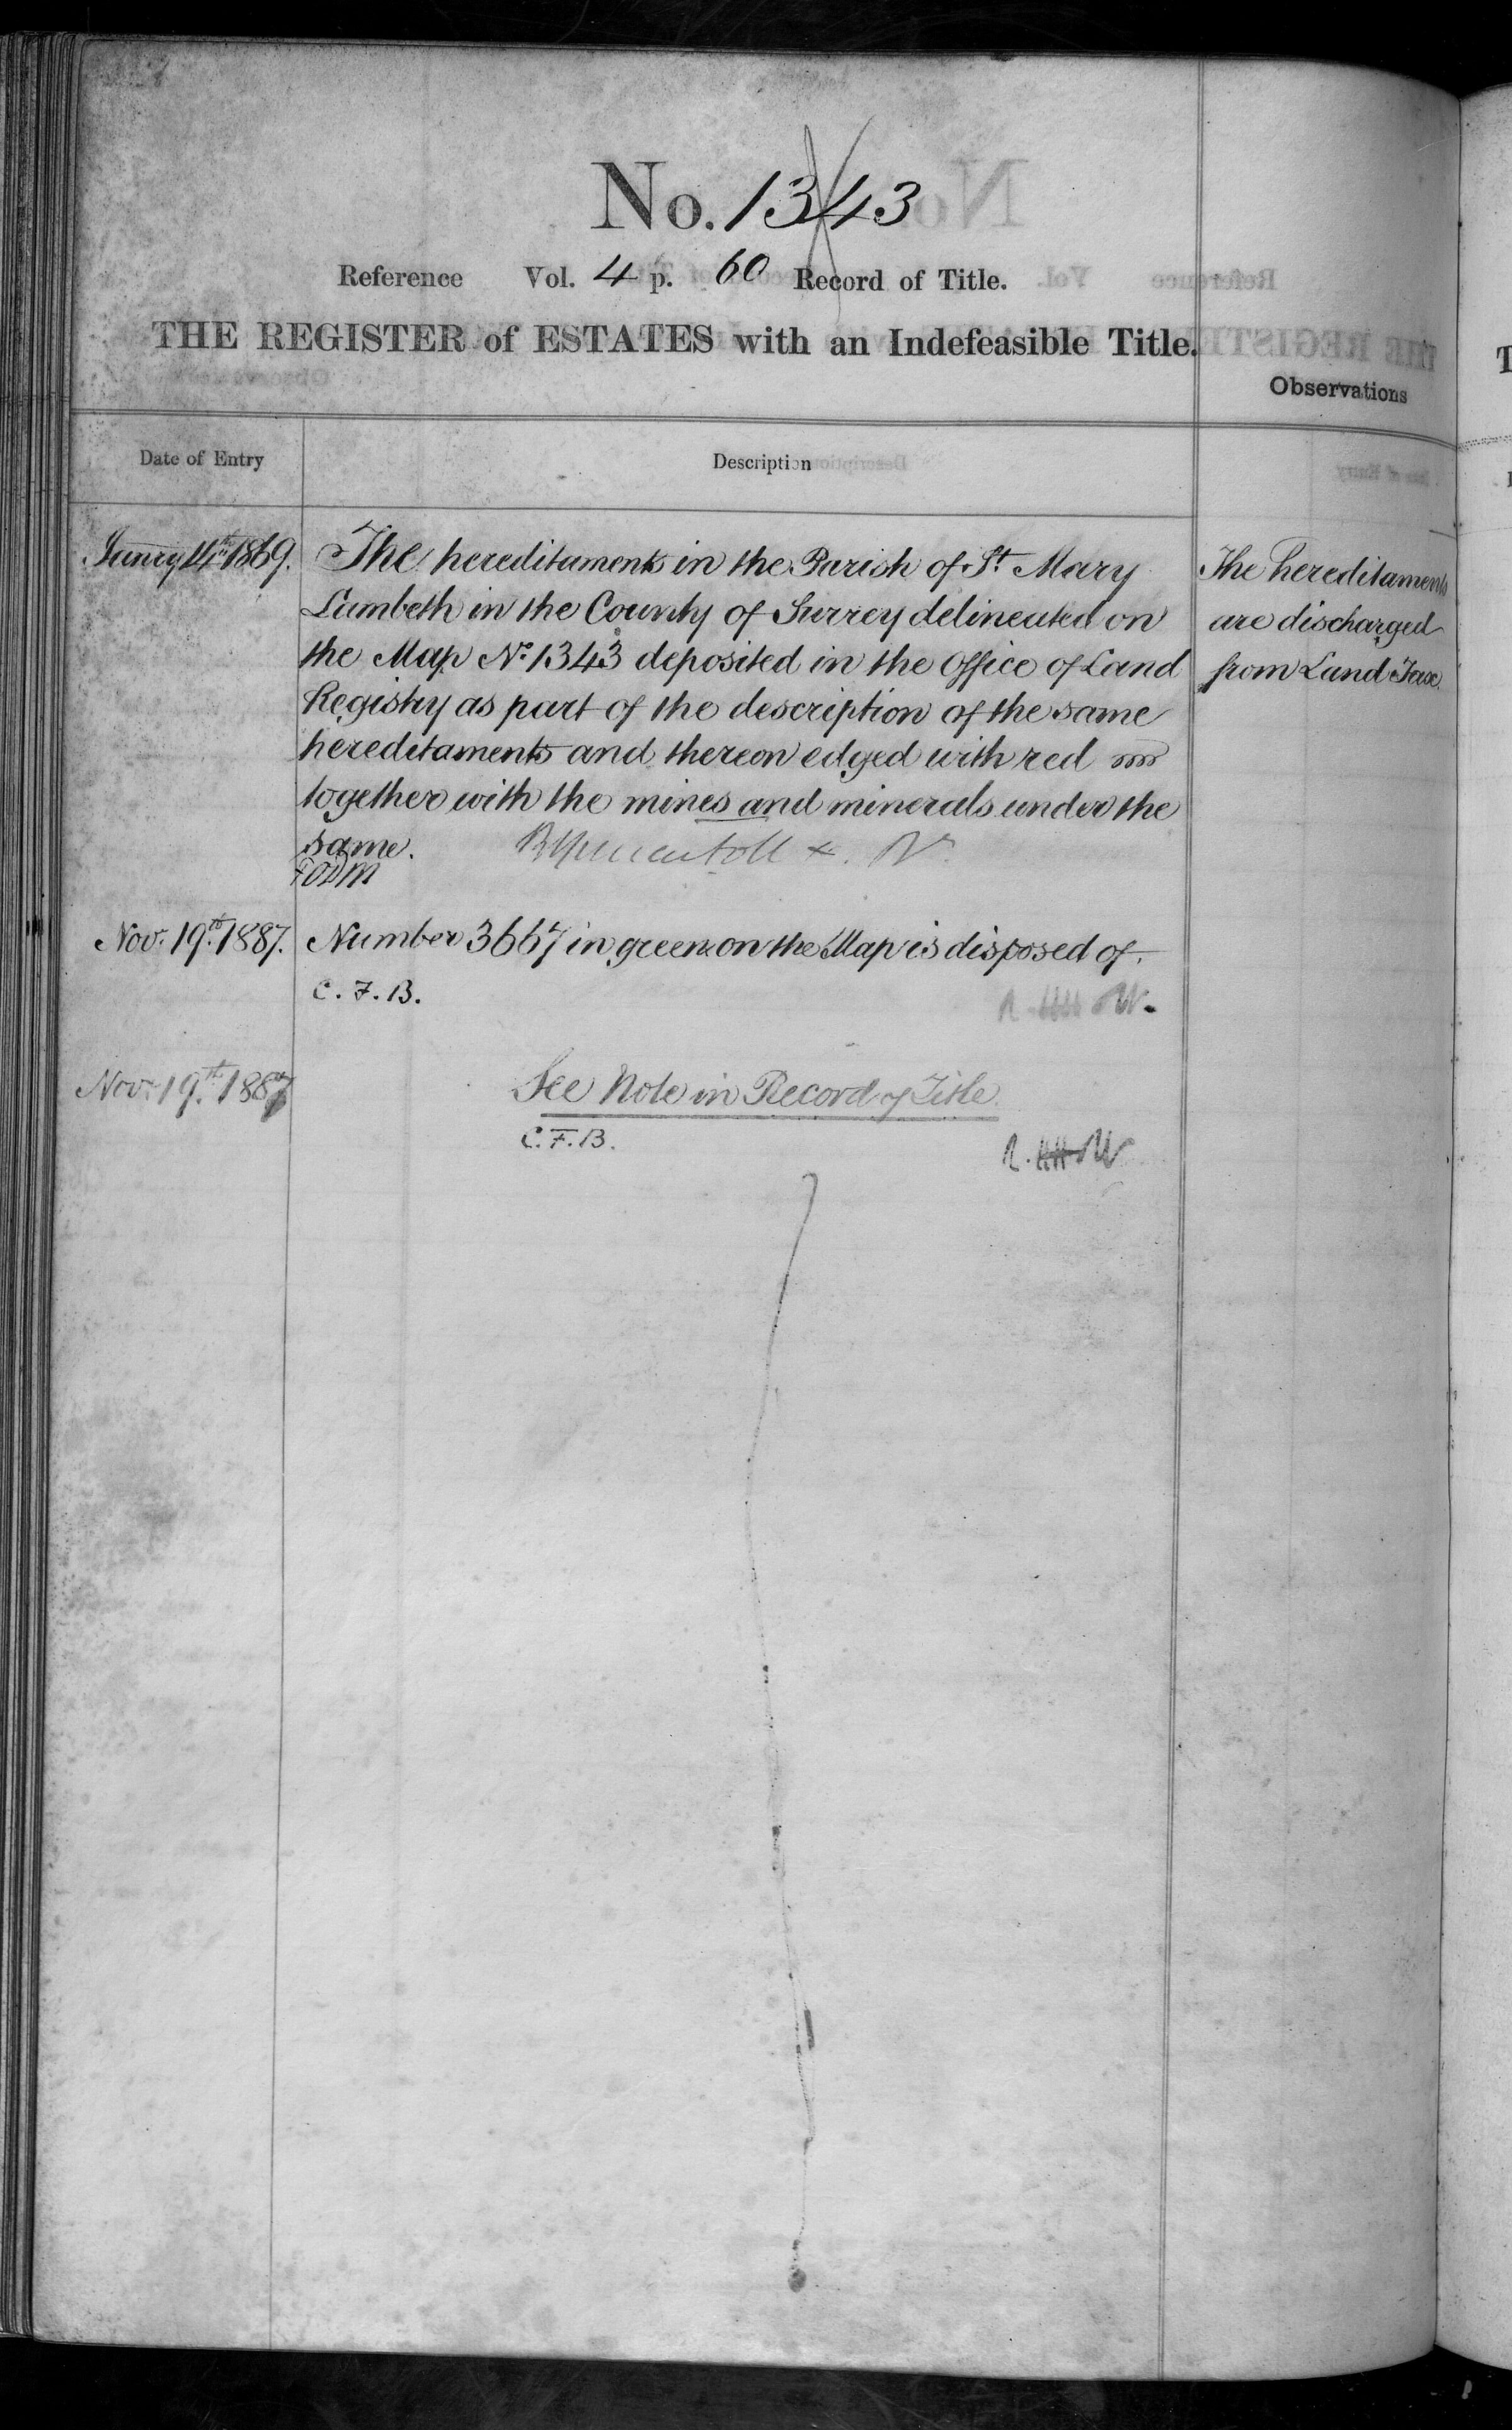 No. 1343
Reference Vol. 4 p. 60 Record of Title.
THE REGISTER of ESTATES with an Indefeasible Title.
Observations
Date of Entry
Description
The hereditaments in the Parish of St. Mary
Lambeth in the County of Surrey delineated on
the Map No. 1343 deposited in the Office of Land
Registry as part of the description of the same
hereditaments and thereon edged with red
together with the mines and minerals under the
same.
The hereditaments
are discharged
from Land Tax
Nov. 19th. 1887. Number 3667 in green on the Map is disposed of.
C. F. B.
Nov. 19th. 1887 See Note in Record of Title.
C. F. B.